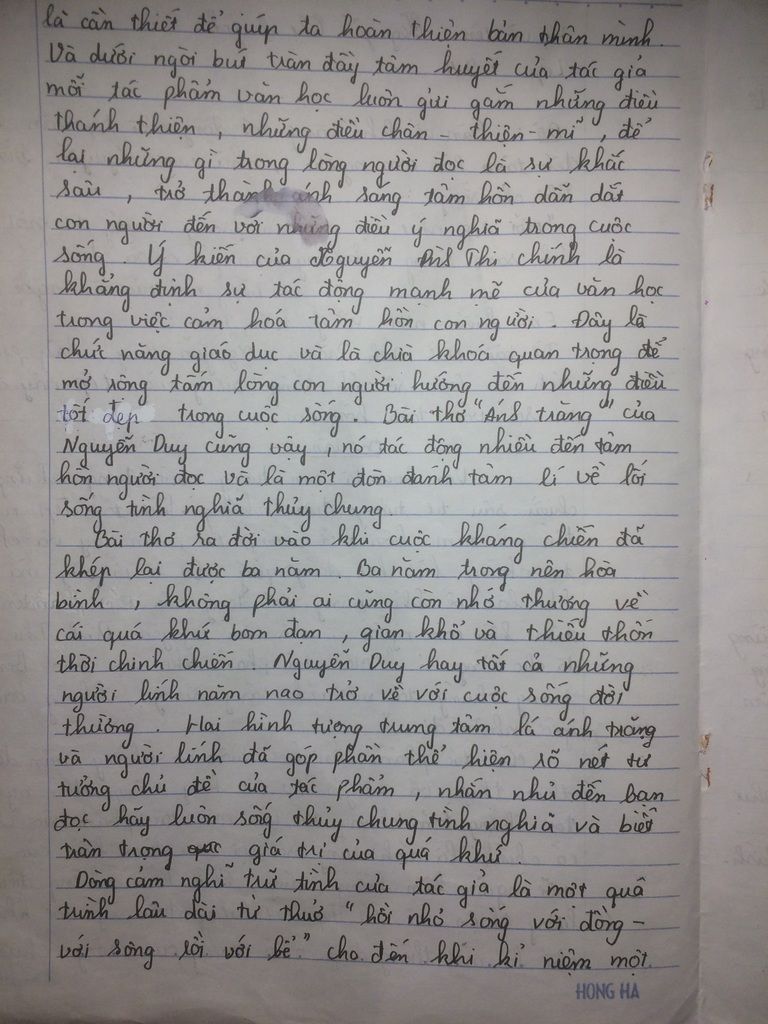 là cần thiết để giúp ta hoàn thiện bản thân mình.
Và dưới ngòi bút tràn đầy tâm huyết của tác giả
mỗi tác phẩm văn học luôn gửi gắm những điều
thánh thiện, những điều chân - thiện - mĩ, để
lại những gì trong lòng người đọc là sự khắc
sâu, trở thành ánh sáng tâm hồn dẫn dắt
con người đến với những điều ý nghĩa trong cuộc
sống. Ý kiến của Nguyễn Đình Thi chính là
khẳng định sự tác động mạnh mẽ của văn học
trong việc cảm hoá tâm hồn con người. Đây là
chức năng giáo dục và là chìa khoá quan trọng để
mở rộng tấm lòng con người hướng đến những điều
tốt đẹp trong cuộc sống. Bài thơ "Ánh trăng" của
Nguyễn Duy cũng vậy, nó tác động nhiều đến tâm
hồn người đọc và là một đòn đánh tâm lí về lối
sống tình nghĩa thủy chung.
Bài thơ ra đời vào khi cuộc kháng chiến đã
khép lại được ba năm. Ba năm trong nền hòa
bình, không phải ai cũng còn nhớ thương về
cái quá khứ bom đạn, gian khổ và thiếu thốn
thời chinh chiến. Nguyễn Duy hay tất cả những
người lính năm nao trở về với cuộc sống đời
thường. Hai hình tượng trung tâm là ánh trăng
và người lính đã góp phần thể hiện rõ nét tư
tưởng chủ đề của tác phẩm, nhắn nhủ đến bạn
đọc hãy luôn sống thủy chung tình nghĩa và biết
trân trọng giá trị của quá khứ.
Dòng cảm nghĩ trữ tình của tác giả là một quá
trình lâu dài từ thuở "hồi nhỏ sống với đồng -
với sông rồi với bể" cho đến khi kỉ niệm một
HONG HA